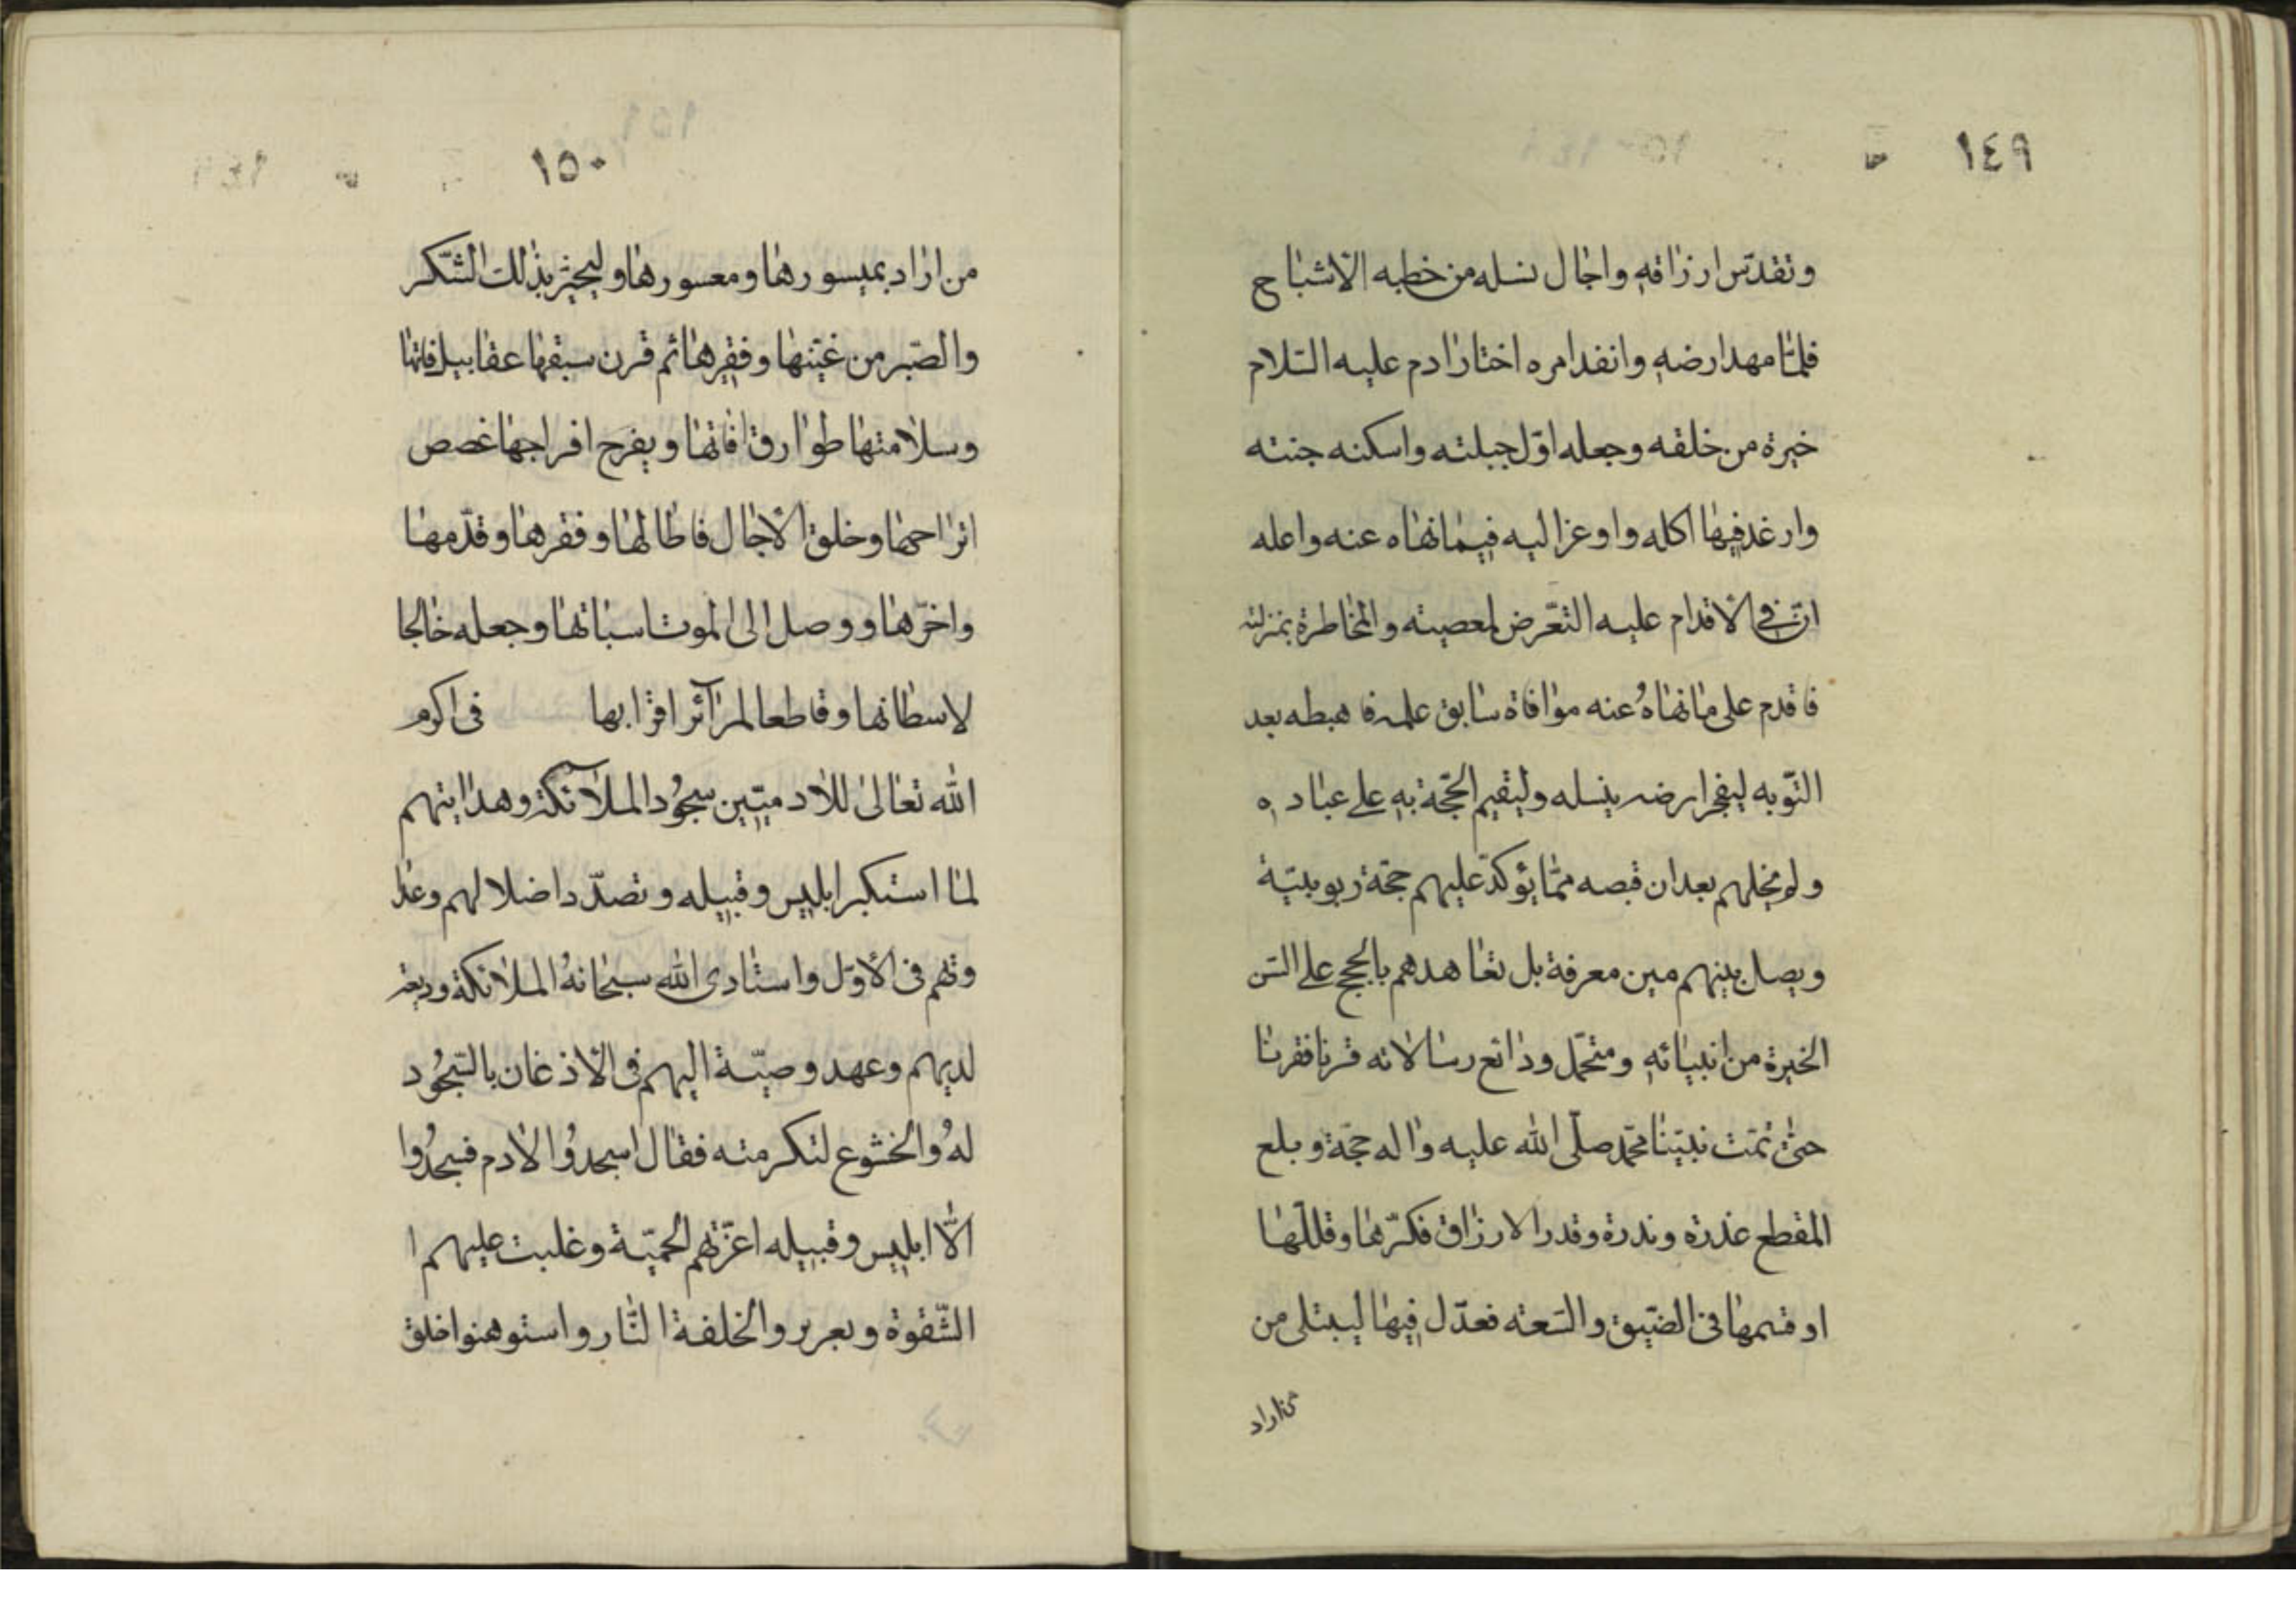 ١٤٩
وتقدّس ارزاقه واجال نسله من خطبه الاشباح
فلمّا مهد ارضه وانفد امره اختار ادم عليه السّلام
خيرة من خلقه وجعله اوّل جبلته واسكنه جنته
وارغد فيها اكله واوعز اليه فيما نهاه عنه واعله
انّ في الاقدام عليه التعّرض لمعصيته والمخاطرة بمنزلته
فاقدم على ما نهاهُ عنه موافاة سابق علمه فاهبطه بعد
التّوبه ليفجر ارضه بنسله وليقيم الحجّة به على عباده
ولم يخلهم بعد ان قبصه ممّا يؤكدّ عليهم حجّة ربوبيّة
ويصل بينهم مين معرفة بل تعاهدهم بالحجج على السن
الخيرة من انبيائه ومتحمّل ودائع رسالاته قرنا فقرنا
حتى تمّت نبيّنا محمّد صلّى الله عليه واله حجّة وبلع
المقطع عذره وندرة وقدر الارزاق فكثّرها وقللّها
او قسمها في الضّيق والسّعته فعدّل فيها ليبتلى من
من اراد
١٥٠
من اراد بميسورها ومعسورها وليجيز بذلك الشّكر
والصّبر من غيّنها وفقيرها ثم قرن سبقها عقابيل فاتها
وسلامتها طوارق افاتها ويفرح افراجها غصص
اتراحمها وخلق الاجال فاطالها وفقرها وقدّمها
واخّرها ووصل الى الموت اسباتها وجعله خالجا
لاسطانها وقاطعا لمرآئر اقرابها في اكرم
الله تعالى للاد ميّين سجُود الملآئكة وهدايتهم
لما استكبر ابليس وقبيله وتصدّد اضلالهم وعدا
وتهم في الاوّل واستادى الله سبحانهُ الملائكة وديعته
لديهم وعهد وصيّة اليهم في الاذغان بالسّجُود
لهُ والخشوع لتكرمته فقال اسجدُوا الادم فسجدُوا
الاّ ابليس وقبيله اعتّرتهم الحميّة وغلبت عليهم ا
الشّقوة وبعرير والخلفة النّار واستوهنوا خلق